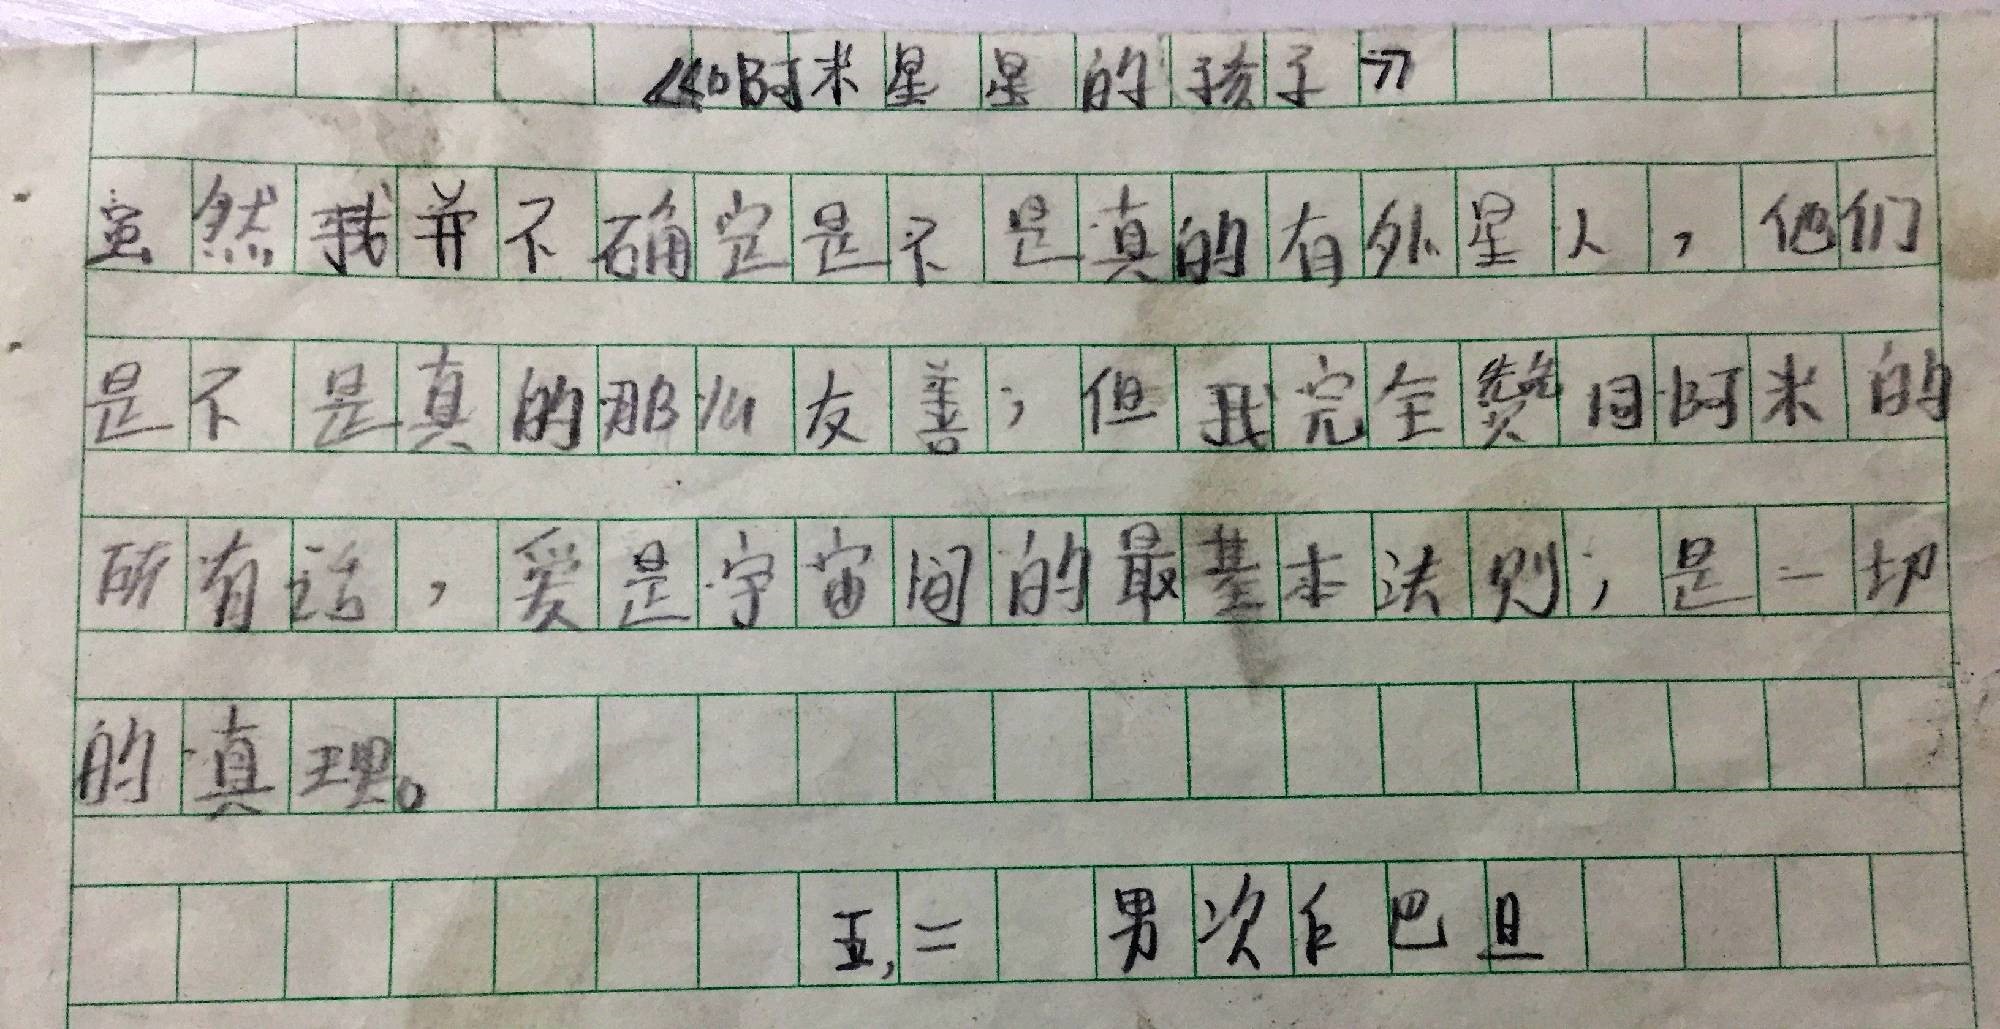 《阿米星星的孩子》
虽然我并不确定是不是真的有外星人，他们
是不是真的那么友善；但我完全赞同阿米的
所有话，爱是宇宙间的最基本法则；是一切
的真理。
五,二 男次仁巴旦